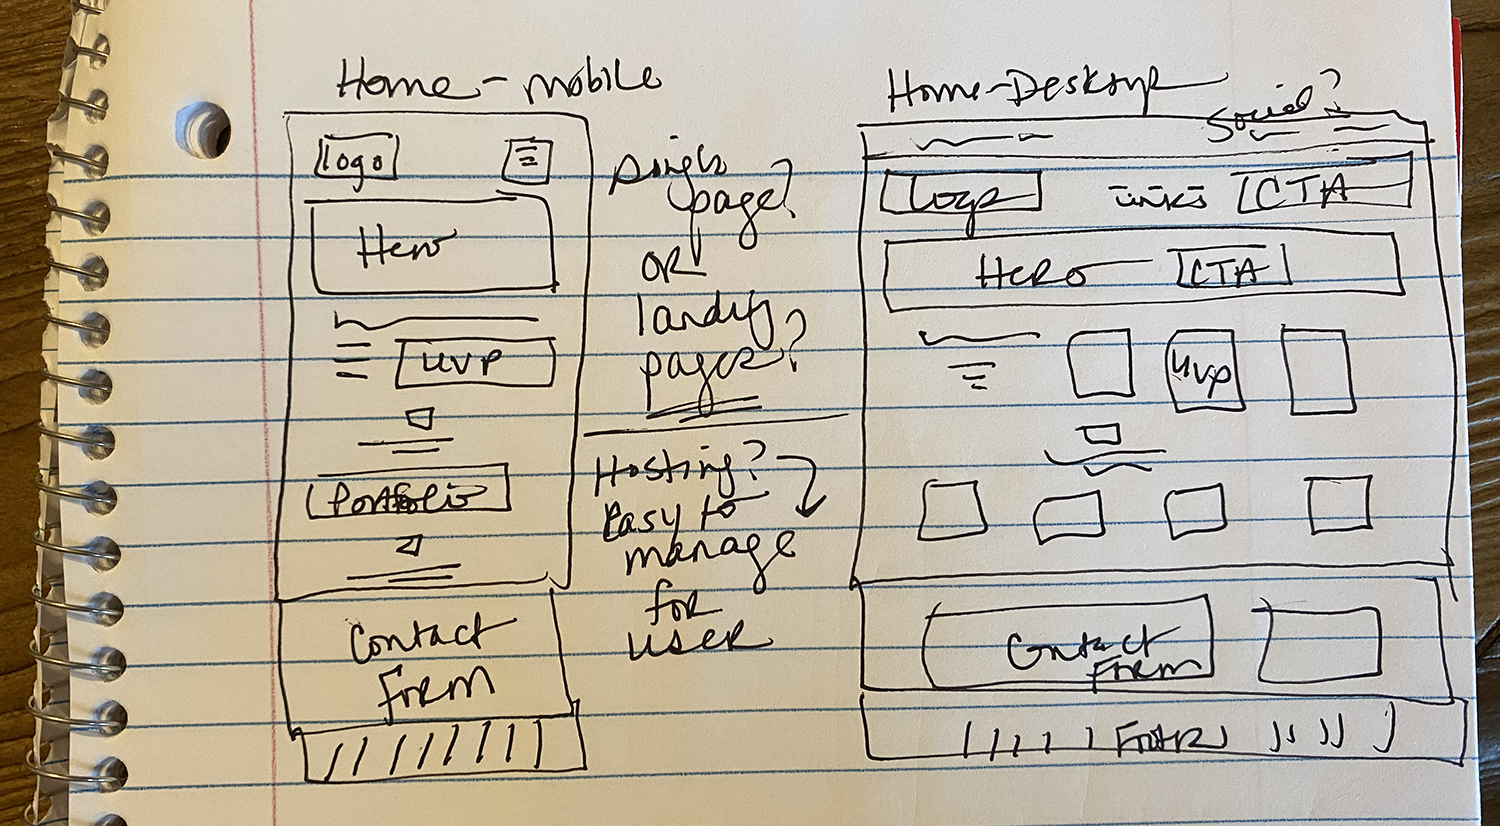 Home - mobile
logo
Hero
UVP
Portfolio
Contact
Form
single
page?
OR
landing
pages?
Hosting?
easy to
manage
for
user
Home-Desktop
Social?
Logo
Links
CTA
Hero
CTA
UVP
Contact
Form
Footer